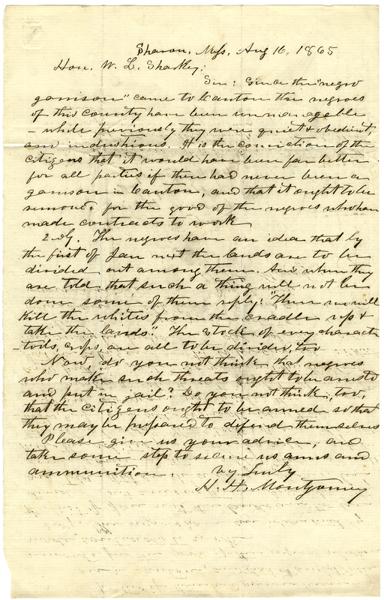 Sharon, Miss, Aug 16, 1865
Hon. W. L. Sharkey:
Sir: Since the "negro
garrison" came to Canton the negroes
of this County have been unmanageable
- while previously they were quiet & obedient,
and industrious. It is the conviction of the
citizens that it would have been far better
for all parties if there had never been a
garrison in Canton, and that it ought to be
removed for the good of the negroes who have
made contracts to work
2-dly. The negroes have an idea that by
the first of Jan next the lands are to be
divided out among them. And when they
are told that such a thing will not be
done some of them reply: "Then we will
Kill the whites from the Cradle up &
take the lands." The Stock of every character
tools, crops, are all to be divided, too
Now, do you not think that negroes
who make such threats ought to be arrested
and put in jail? Do you not think, too,
that the citizens ought to be armed so that
they may be prepared to defend themselves
Please give us your advice, and
take some step to secure us arms and
ammunition.
Very Truly
H. H. Montgomery